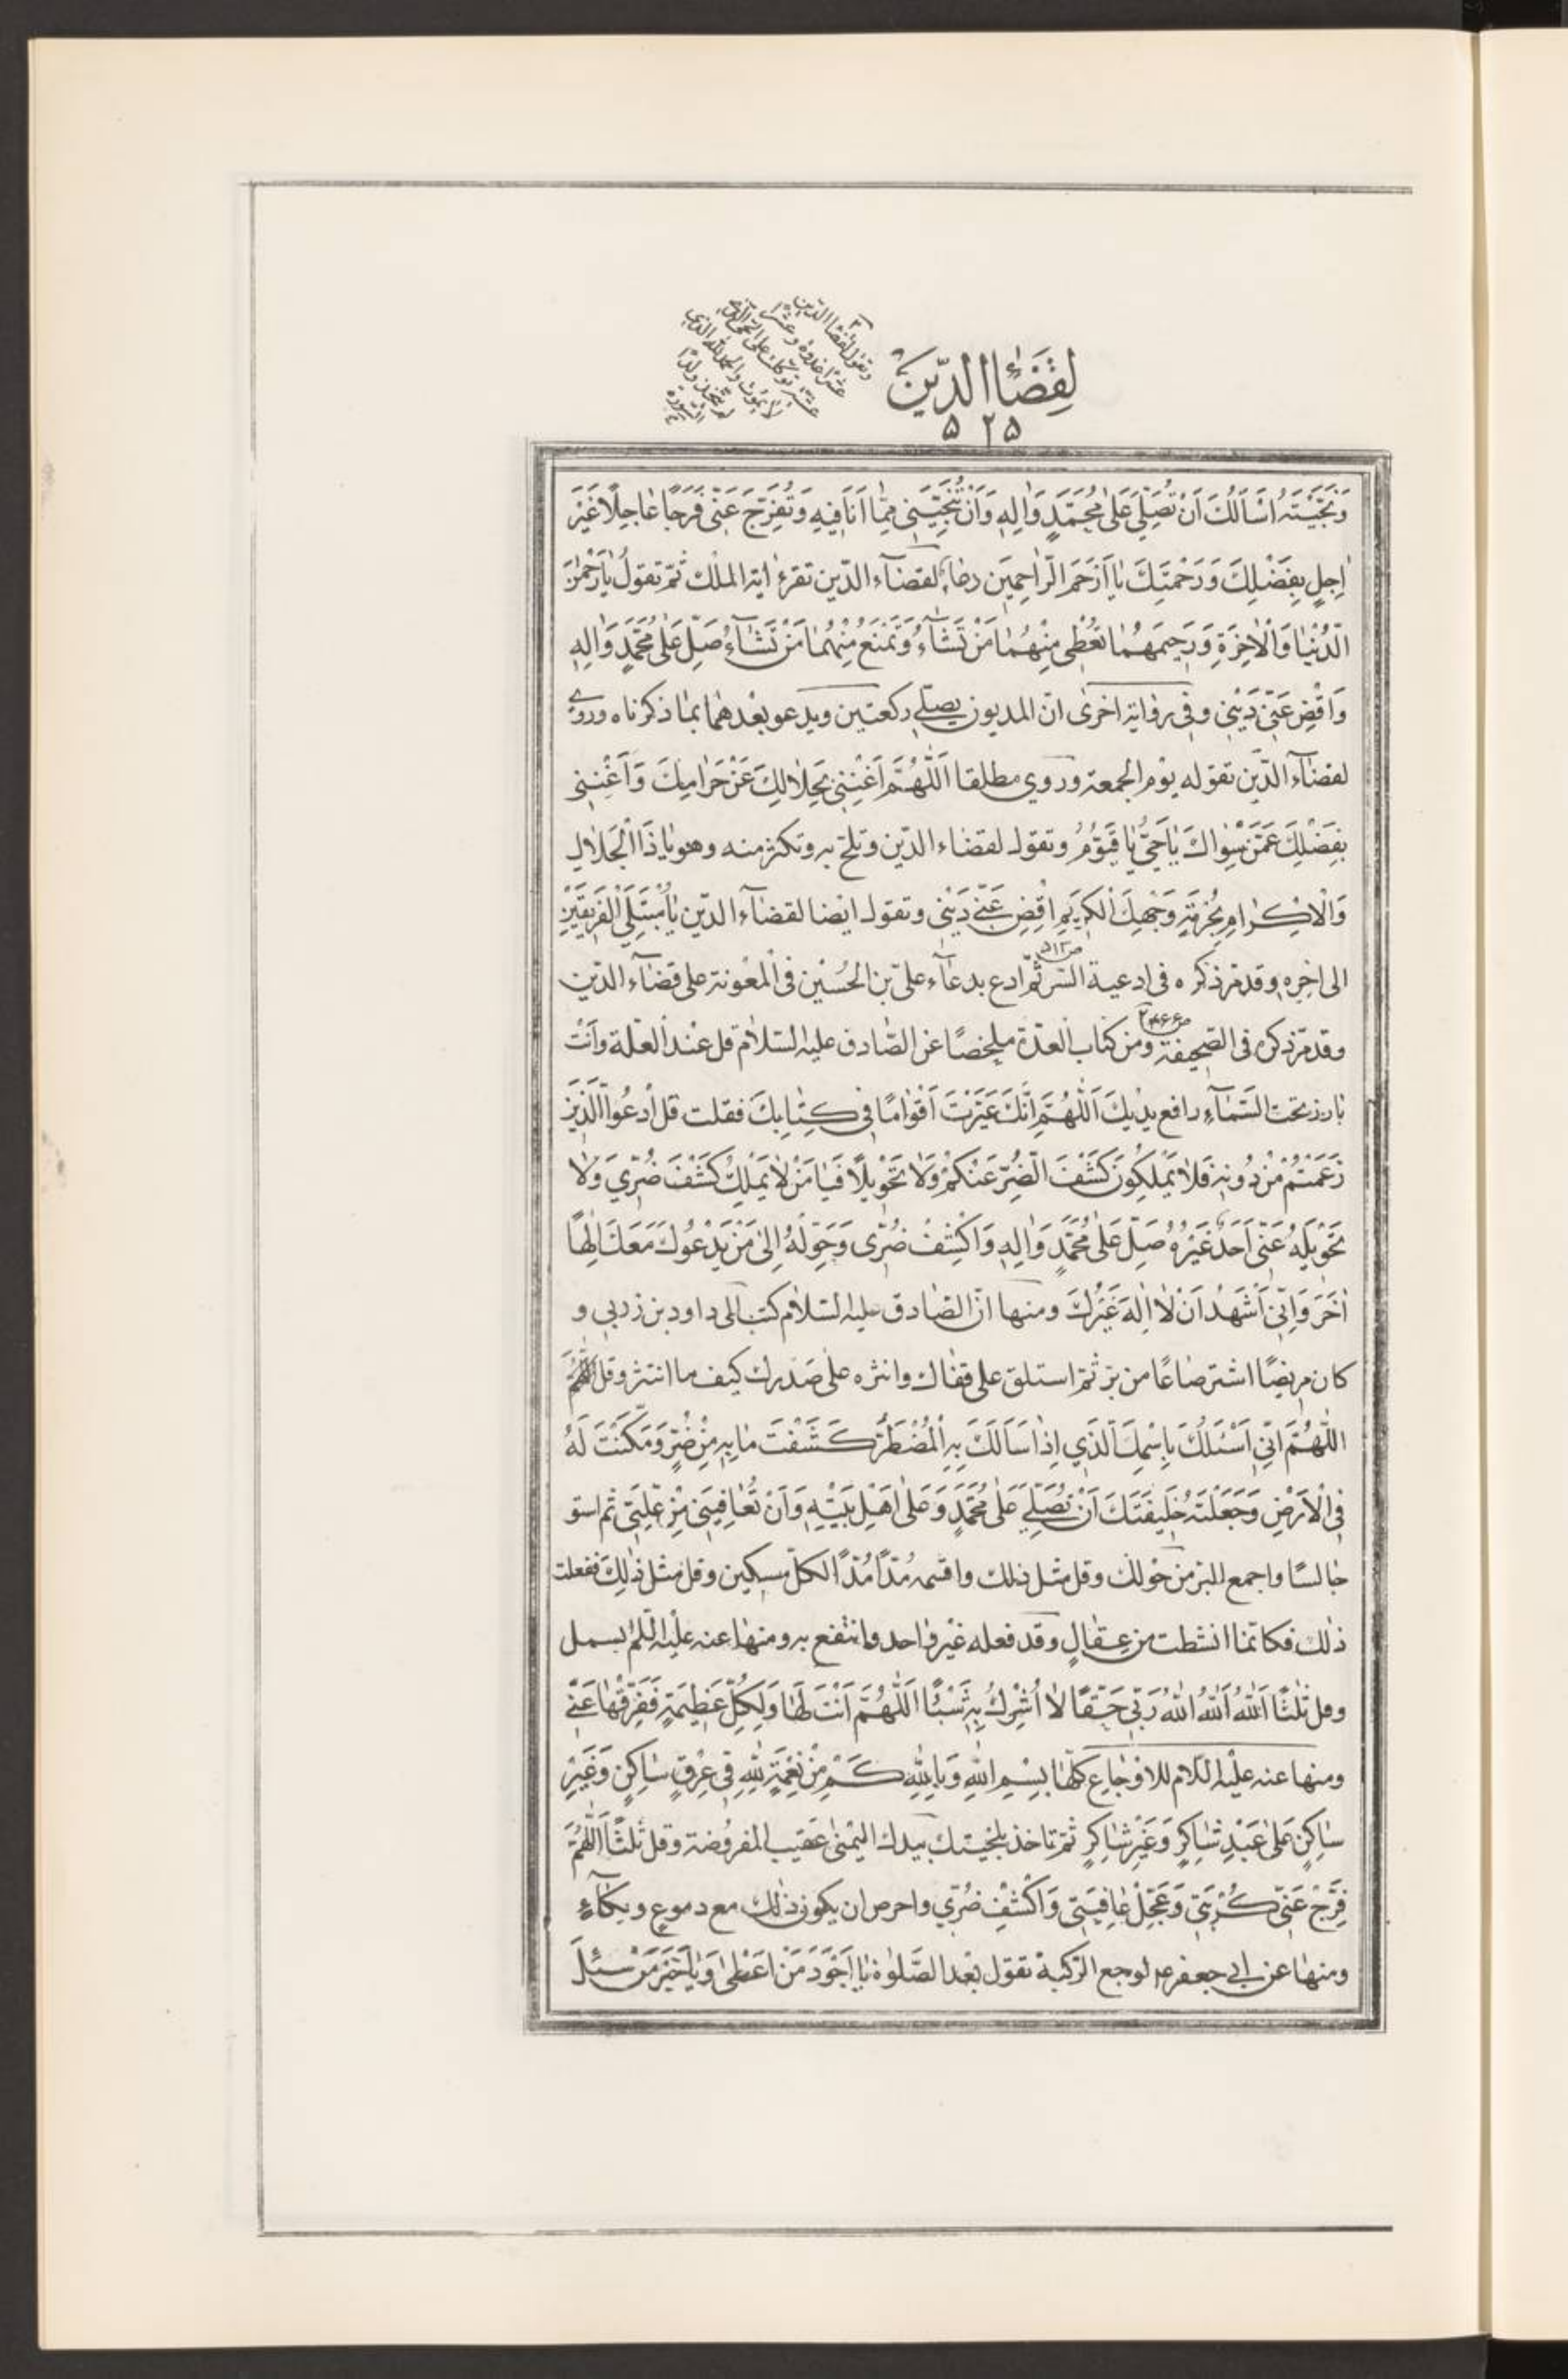 لِقَضٰٓاءِ الدَّيْنِ
٥٢٥
وتقول لقضاء الدين
عشرا غدوة وعشرا
عشية توكلت على الحى الذى
لا يموت والحمد لله الذي
لم يتخذ ولدًا
السورة
وَنَجَّيْتَهُ اَسْاَلُكَ اَنْ تُصَلِّيَ عَلىٰ مُحَمَّدٍ وَاٰلِهِ وَاَنْ تُنَجِّيَنِي مِمّٰا اَنَا فِيهِ وَتُفَرِّجَ عَنّى فَرَجًا عٰاجِلًا غَيْرَ
اٰجِلٍ بِفَضْلِكَ وَرَحْمَتِكَ يٰا اَرْحَمَ الرّٰاحِمِيَن دعاء لقضآء الدّين تقرء اية الملك ثمّ تقولُ يٰا رَحْمٰنَ
الدُّنْيٰا وَالْاٰخِرَةِ وَرَحِيمَهُمٰا تُعْطِى مِنْهُمٰا مَنْ تَشٰآءُ وَتَمْنَعُ مِنْهُمٰا مَنْ تَشٰآءُ صَلِّ عَلىٰ مُحَمَّدٍ وَاٰلِهِ
وَاقْضِ عَنّى دَيْنِى وفى رواية اخرى انّ المديون يصلّے ركعتين ويدعو بعدهما بما ذكرناه وروے
لقضآء الدّين تقوله يوم الجمعة وروي مطلقا اَللّٰهُمَّ اَغْنِنِى بِحَلٰالِكَ عَنْ حَرٰامِكَ وَاَغْنِنِى
بِفَضْلِكَ عَمَّنْ سِوٰاكَ يٰا حَىُّ يٰا قَيُّومُ وتقول لقضاء الدّين وتلحّ به وتكثر منه وهو يٰا ذَا الْجَلٰالِ
وَالْاِكْرٰامِ بِحُرْمَةِ وَجْهِكَ الْكَرِيمِ اقْضِ عَنّے دَيْنِى وتقول ايضا لقضآء الدّين يٰا مُبْتَلِيَ الْفَرِيقَيْنِ
الى اخره وقد مرّ ذكره فى ادعية السّر ثمّ ادع بدعآء علىّ بن الحُسَيْن فى المعونة على قضآء الدّين
وقد مرّ ذكره فى الصّحيفة ومن كتاب العدّة ملخصًا عن الصّادق عليه السّلام قل عند العلّة وأنت
بارز تحت السّمآء رافع يديك اَللّٰهُمَّ اِنَّكَ عَيَّرْتَ اَقْوٰامًا فِى كِتٰابِكَ فقلت قل ادْعُوا الَّذِينَ
زَعَمْتُمْ مِنْ دُونِهِ فَلٰا يَمْلِكُونَ كَشْفَ الضُّرِّ عَنْكُمْ وَلٰا تَحْوِيلًا فَيٰا مَنْ لٰا يَمْلِكُ كَشْفَ ضُرّي وَلٰا
تَحْوِيلَهُ عَنّى اَحَدٌ غَيْرُهُ صَلِّ عَلىٰ مُحَمَّدٍ وَاٰلِهِ وَاكْشِفْ ضُرّى وَحَوِّلْهُ اِلىٰ مَنْ يَدْعُوكَ مَعَكَ اِلٰهًا
اٰخَرَ وَاِنّى اَشْهَدُ اَنْ لٰا اِلٰهَ غَيْرُكَ ومنها انّ الصّادق عليه السّلام كتب الى داود بن زربي و
كان مريضًا اشتر صاعًا من برّ ثمّ استلق على قفاك وانثره على صدرك كيف ما انتثر وقل
اللّٰهُمَّ اِنّى اَسْئَلُكَ بِاسْمِكَ الَّذِي اِذٰا سَاَلَكَ بِهِ الْمُضْطَرُّ كَشَفْتَ مٰا بِهِ مِنْ ضُرٍّ وَمَكَّنْتَ لَهُ
فِى الْاَرْضِ وَجَعَلْتَهُ خَلِيفَتَكَ اَنْ تُصَلِّيَ عَلىٰ مُحَمَّدٍ وَعَلىٰ اَهْلِ بَيْتِهِ وَاَنْ تُعٰافِيَنِى مِنْ عِلَّتِى ثم استو
جالسًا واجمع البرّ من حولك وقل مثل ذلك واقسمه مُدًّا مُدًّا لكلّ مسكين وقل مثل ذٰلك ففعلت
ذلك فكانّما انشطت من عِقالٍ وقد فعله غير واحد وانتفع به ومنها عنه عليه السّلم بسمل
وقل ثلثًا اَللّٰهُ اَللّٰهُ اَللّٰهُ رَبّى حَقًّا لٰا اُشْرِكُ بِهِ شَيْئًا اَللّٰهُمَّ اَنْتَ لَهٰا وَلِكُلِّ عَظِيمَةٍ فَفَرِّقْهٰا عَنّے
ومنها عنه عليه السّلام للاوجاع كلّها بِسْمِ اللّٰهِ وَبِاللّٰهِ كَمْ مِنْ نِعْمَةٍ لِلّٰهِ فِى عِرْقٍ سٰاكِنٍ وَغَيْرِ
سٰاكِنٍ عَلىٰ عَبْدٍ شٰاكِرٍ وَغَيْرِ شٰاكِرٍ ثمّ تاخذ بلحيتك بيدك اليمنى عقيب المفروضة وقل ثلثًا اَللّٰهُمَّ
فَرِّجْ عَنّى كُرْبَتِى وَعَجِّلْ عٰافِيَتِى وَاكْشِفْ ضُرّي واحرص ان يكون ذلك مع دموع وبكآء
ومنها عن ابى جعفر ع لوجع الرّكبة تقول بعد الصّلوة يٰا اَجْوَدَ مَنْ اَعْطىٰ وَيٰا خَيْرَ مَنْ سُئِلَ